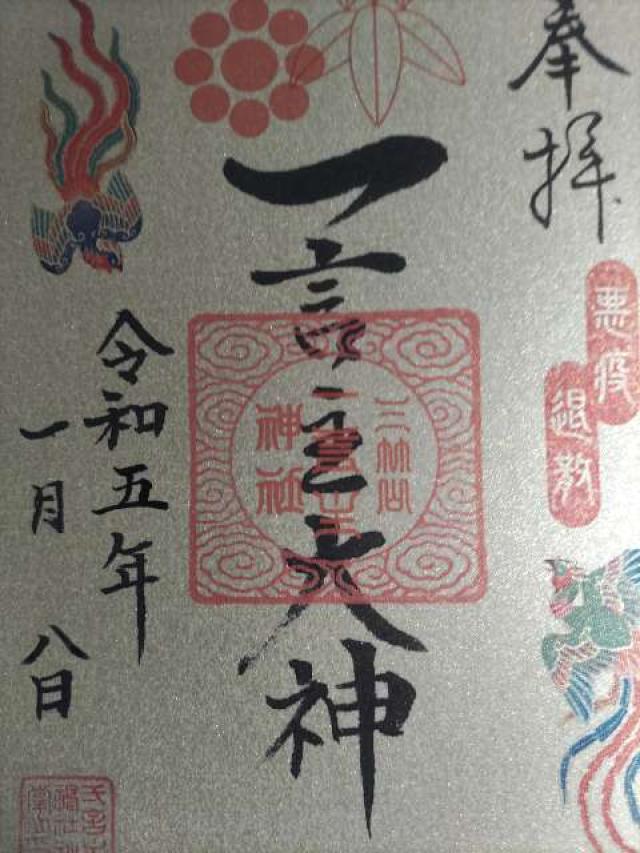 奉拝
悪疫
退散
一言主大神
三竹山
一言主
神社
令和五年
一月八日